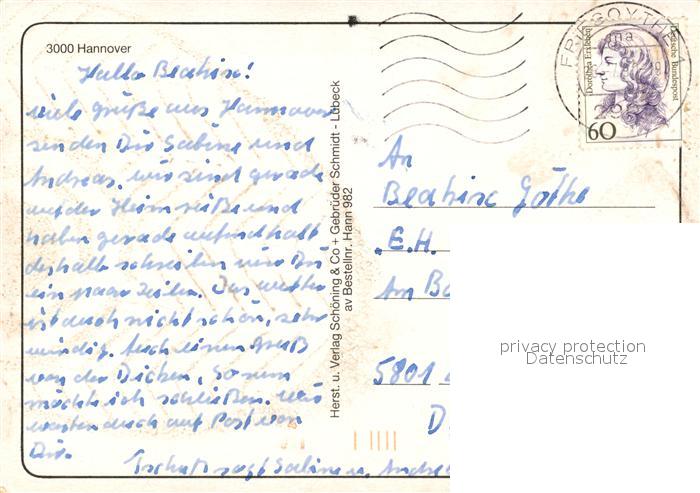 3000 Hannover
Hallo Beatrix!
viele grüße aus Hannover
senden Dir Sabine und
Andreas. wir sind gerade
auf der Heimreise und
haben gerade aufenthalt
deshalb schreiben wir Dir
ein paar Zeilen. Das wetter
ist auch nicht schön, sehr
windig. Auch einen Gruß
von der Dicken, So nun
möchte ich schließen. wir
warten auch auf Post von
Dir.
Tschüß sagt Sabine u. Andrea
Herst. u. Verlag Schöning & Co + Gebrüder Schmidt - Lübeck
av Bestellnr. Hann 982
FRIESOYTHE
Dorothea Erxleben
Deutsche Bundespost
60
An
Beatrix Göthe
E.H.
Am Ba
5801
D
privacy protection
Datenschutz